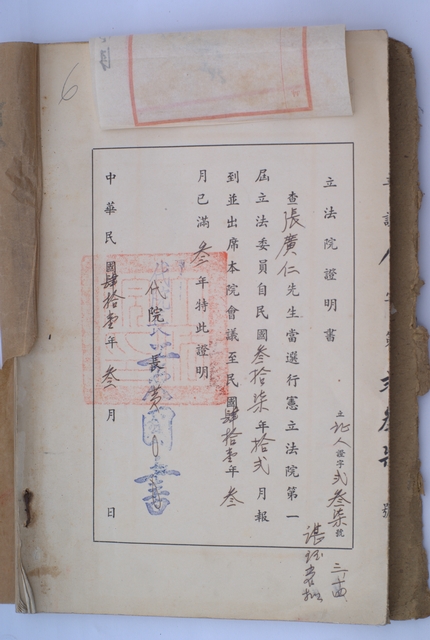 立法院證明書
立 證人 證字 弍叁柒 號
查張廣仁先生當選行憲立法院第一
屆立法委員自民國叁拾柒年拾弍月報
到並出席本院會議至民國肆拾壹年叁
月已滿叁年特此證明
代院長黃國書
中華民國肆拾壹年叁月 日
6